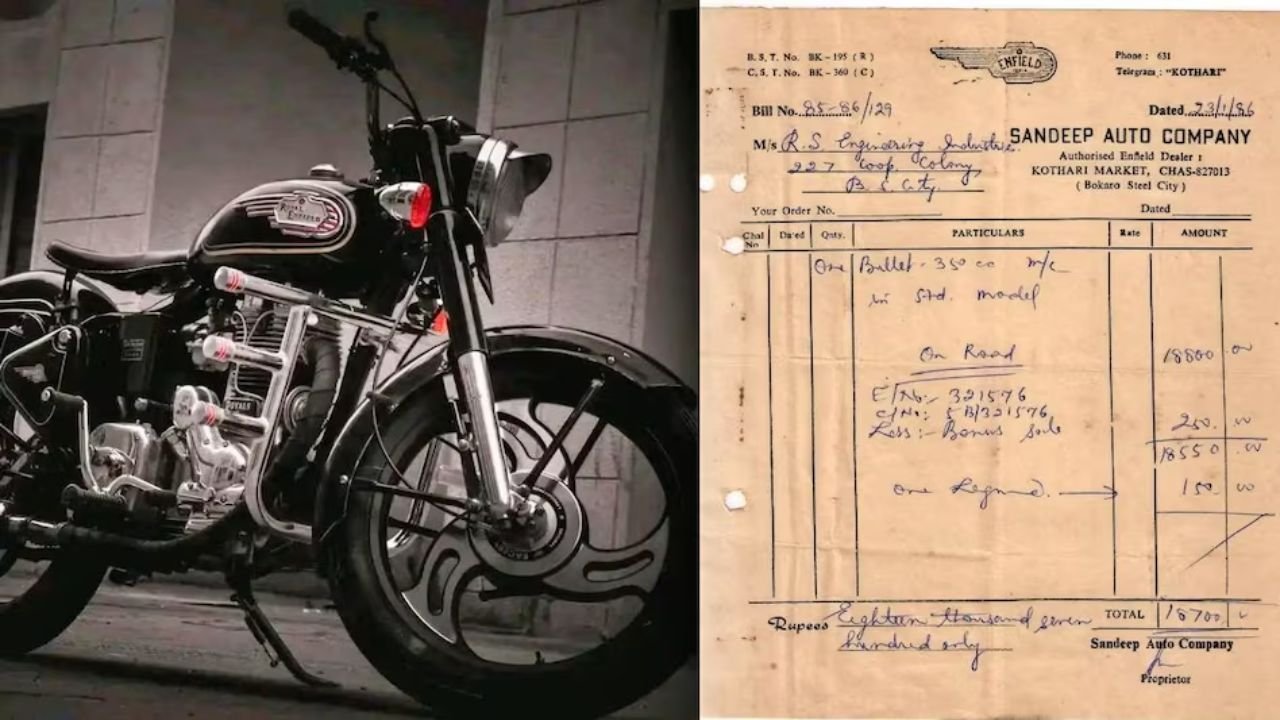 ROYAL
ENFIELD
B.S.T. No. BK-195 (R)
C.S.T. No. BK-360 (C)
ENFIELD
Phone : 631
Telegram : "KOTHARI"
Bill No. 85-86/129
Dated 23/1/86
M/s R.S. Engineering Industries
227 Coop. Colony
B.S. City.
SANDEEP AUTO COMPANY
Authorised Enfield Dealer :
KOTHARI MARKET, CHAS-827013
( Bokaro Steel City )
Your Order No.
Dated
Chal No Dated Qnty. PARTICULARS Rate AMOUNT
One Bullet-350 cc m/c
in Std. model
On Road 18800.00
E/No:- 321576
C/No:- 5B/321576
Less:- Bonus sale 250.00
18550.00
one 150.00
Rupees Eighteen thousand seven
hundred only
TOTAL 18700
Sandeep Auto Company
Proprietor